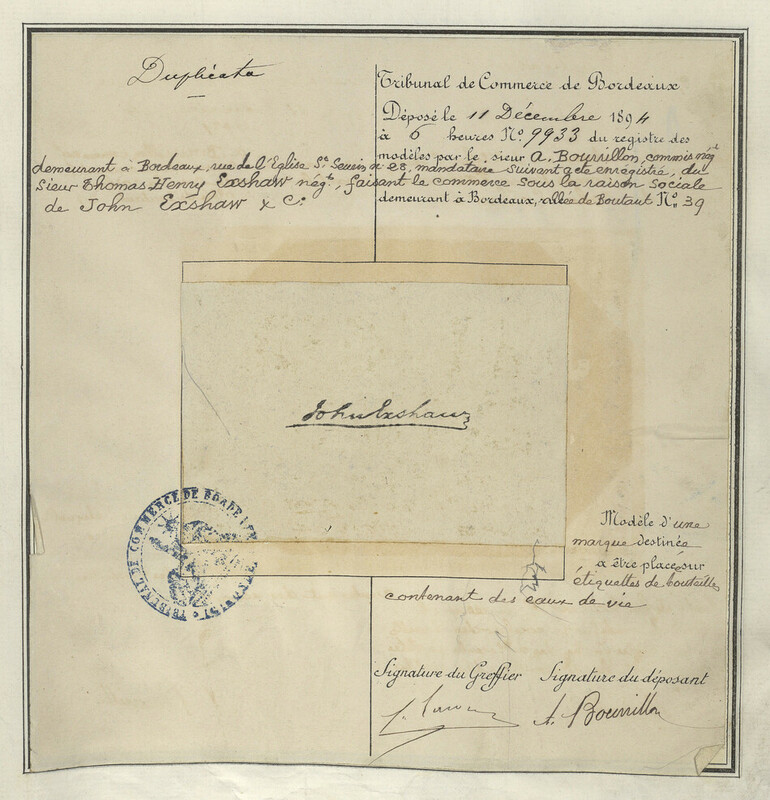 Duplicata
Tribunal de Commerce de Bordeaux
Déposé le 11 Décembre 1894
à 6 heures N° 9933 du registre des
modèles par le sieur A. Bourillon, commis négt
demeurant à Bordeaux, rue de l'Eglise St Seurin n° 28, mandataire suivant acte enregistré, du
Sieur Thomas Henry Exshaw négt, faisant le commerce sous la raison sociale
de John Exshaw & C°
demeurant à Bordeaux, allée de Boutaut N° 39
John Exshaw
TRIBUNAL DE COMMERCE DE BORDEAUX
Modèle d'une
marque destinée
à être placé sur
étiquettes de bouteilles
contenant des eaux de vie
Signature du Greffier Signature du déposant
A. Bourillon